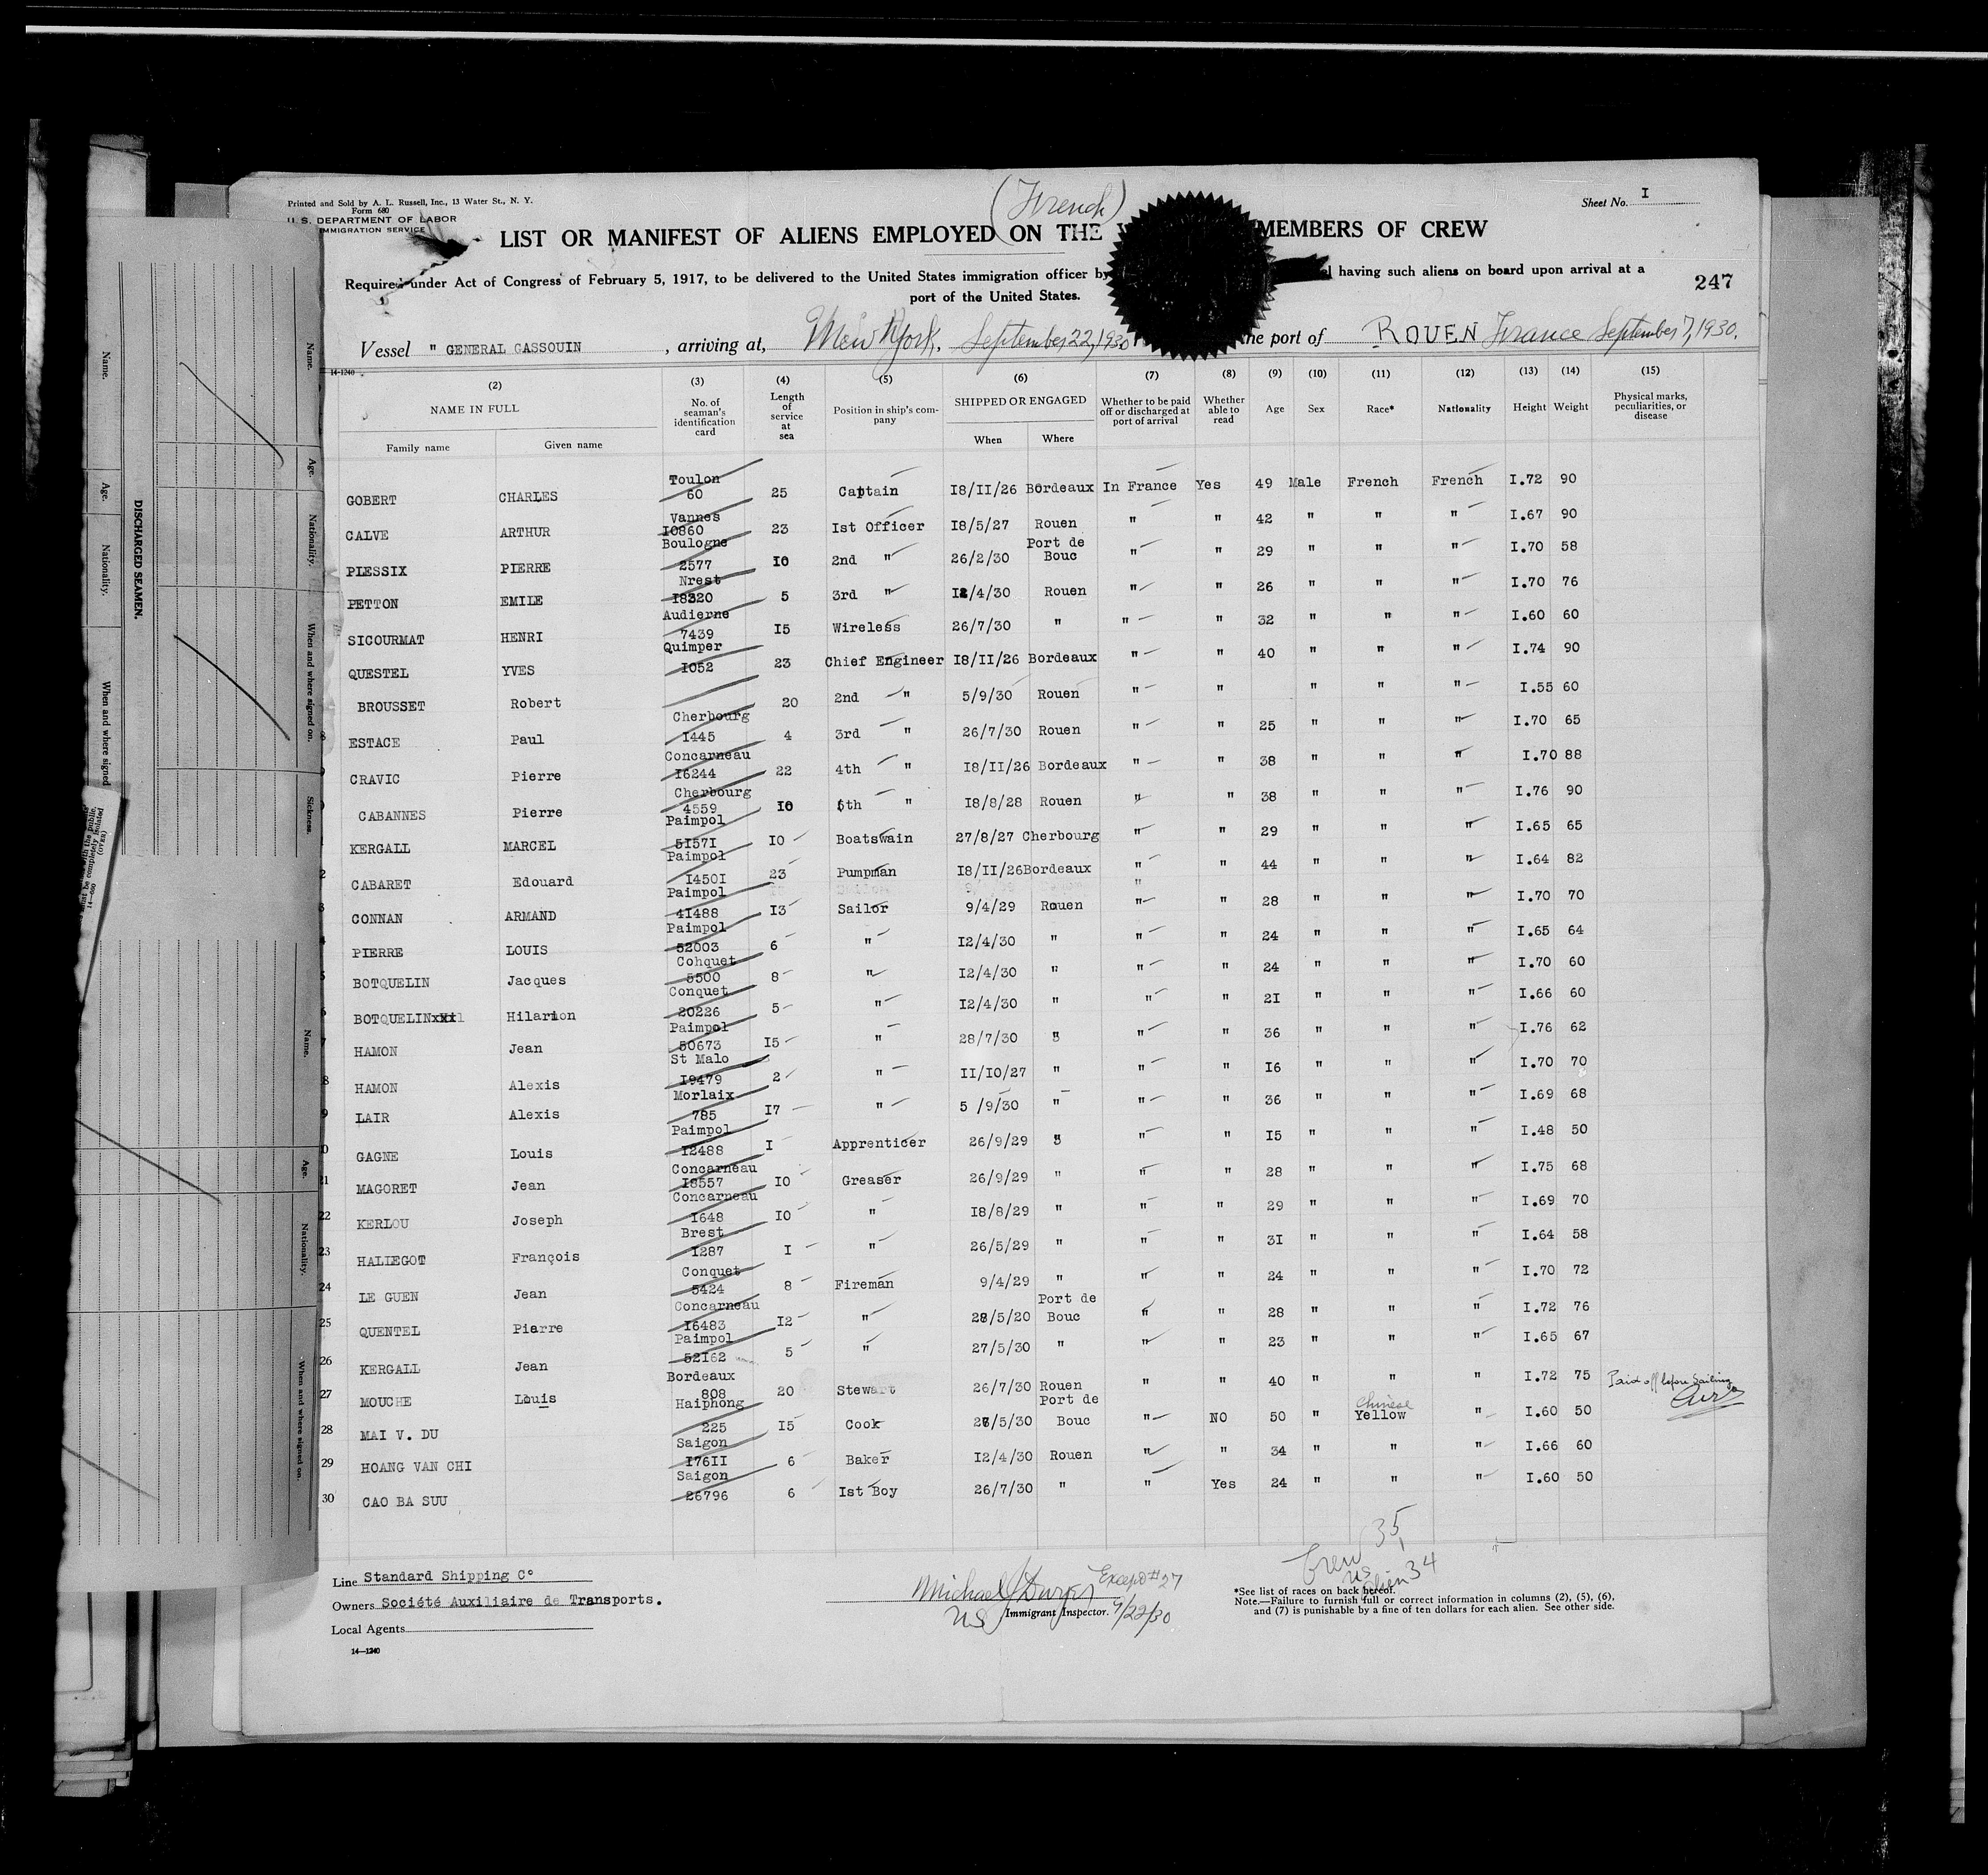 Printed and Sold by A. L. Russell, Inc., 13 Water St., N. Y.
Form 680
U. S. DEPARTMENT OF LABOR
IMMIGRATION SERVICE
(French)
Sheet No. I
LIST OR MANIFEST OF ALIENS EMPLOYED ON THE MEMBERS OF CREW
Required under Act of Congress of February 5, 1917, to be delivered to the United States immigration officer by having such aliens on board upon arrival at a
port of the United States.
247
Vessel " GENERAL GASSOUIN , arriving at, New York, September 22, 1930 the port of ROUEN France September 7, 1930.
14-1240
(2) (3) (4) (5) (6) (7) (8) (9) (10) (11) (12) (13) (14) (15)
NAME IN FULL
Family name Given name
No. of seaman's identification card
Length of service at sea
Position in ship's company
SHIPPED OR ENGAGED
When Where
Whether to be paid off or discharged at port of arrival
Whether able to read
Age Sex Race* Nationality Height Weight
Physical marks, peculiarities, or disease
GOBERT CHARLES Toulon 60 25 Captain I8/II/26 Bordeaux In France Yes 49 Male French French I.72 90
CALVE ARTHUR Vannes I0860 23 Ist Officer I8/5/27 Rouen " " 42 " " " I.67 90
PLESSIX PIERRE Boulogne 2577 I0 2nd " 26/2/30 Port de Bouc " " 29 " " " I.70 58
PETTON EMILE Nrest I8320 5 3rd " I2/4/30 Rouen " " 26 " " " I.70 76
SICOURMAT HENRI Audierne 7439 I5 Wireless 26/7/30 " " " 32 " " " I.60 60
QUESTEL YVES Quimper I052 23 Chief Engineer I8/II/26 Bordeaux " " 40 " " " I.74 90
BROUSSET Robert 20 2nd " 5/9/30 Rouen " " " " " I.55 60
8 ESTACE Paul Cherbourg I445 4 3rd " 26/7/30 Rouen " " 25 " " " I.70 65
9 CRAVIC Pierre Concarneau I6244 22 4th " I8/II/26 Bordeaux " " 38 " " " I.70 88
0 CABANNES Pierre Cherbourg 4559 I0 5th " I8/8/28 Rouen " " 38 " " " I.76 90
1 KERGALL MARCEL Paimpol 5I57I I0 Boatswain 27/8/27 Cherbourg " " 29 " " " I.65 65
2 CABARET Edouard Paimpol I450I 23 Pumpman I8/II/26 Bordeaux " " 44 " " " I.64 82
3 CONNAN ARMAND Paimpol 4I488 I3 Sailor 9/4/29 Rouen " " 28 " " " I.70 70
4 PIERRE LOUIS Paimpol 52003 6 " I2/4/30 " " " 24 " " " I.65 64
5 BOTQUELIN Jacques Cohquet 5500 8 " I2/4/30 " " " 24 " " " I.70 60
6 BOTQUELIN Hilarion Conquet 20226 5 " I2/4/30 " " " 2I " " " I.66 60
7 HAMON Jean Paimpol 50673 I5 " 28/7/30 " " " 36 " " " I.76 62
8 HAMON Alexis St Malo I9479 2 " II/I0/27 " " " I6 " " " I.70 70
9 LAIR Alexis Morlaix 785 I7 " 5 /9/30 " " " 36 " " " I.69 68
0 GAGNE Louis Paimpol I2488 I Apprenticer 26/9/29 " " " I5 " " " I.48 50
21 MAGORET Jean Concarneau I8557 I0 Greaser 26/9/29 " " " 28 " " " I.75 68
22 KERLOU Joseph Concarneau I648 I0 " I8/8/29 " " " 29 " " " I.69 70
23 HALLEGOT François Brest I287 I " 26/5/29 " " " 3I " " " I.64 58
24 LE GUEN Jean Conquet 5424 8 Fireman 9/4/29 " " " 24 " " " I.70 72
25 QUENTEL Pierre Concarneau I6483 I2 " 28/5/20 Port de Bouc " " 28 " " " I.72 76
26 KERGALL Jean Paimpol 52I62 5 " 27/5/30 " " " 23 " " " I.65 67
27 MOUCHE Louis Bordeaux 808 20 Stewart 26/7/30 Rouen " " 40 " " " I.72 75 Paid off before Sailing
28 MAI V. DU Haiphong 225 I5 Cook 28/5/30 Port de Bouc " NO 50 " Chinese Yellow " I.60 50
29 HOANG VAN CHI Saigon I76II 6 Baker I2/4/30 Rouen " " 34 " " " I.66 60
30 CAO BA SUU Saigon 26796 6 Ist Boy 26/7/30 " " Yes 24 " " " I.60 50
Crew 35
US 1
Alien 34
Line Standard Shipping C°
Owners Société Auxiliaire de Transports.
Local Agents
14—1240
Except #27
Michael
US Immigrant Inspector. 9/22/30
*See list of races on back hereof.
Note.—Failure to furnish full or correct information in columns (2), (5), (6),
and (7) is punishable by a fine of ten dollars for each alien. See other side.
DISCHARGED SEAMEN.
Name. Age. Nationality. When and where signed
Name. Age. Nationality. When and where signed on. Sickness.
Name. Age. Nationality. When and where signed on.
with the public,
be completely isolated
(OVER)
14—690